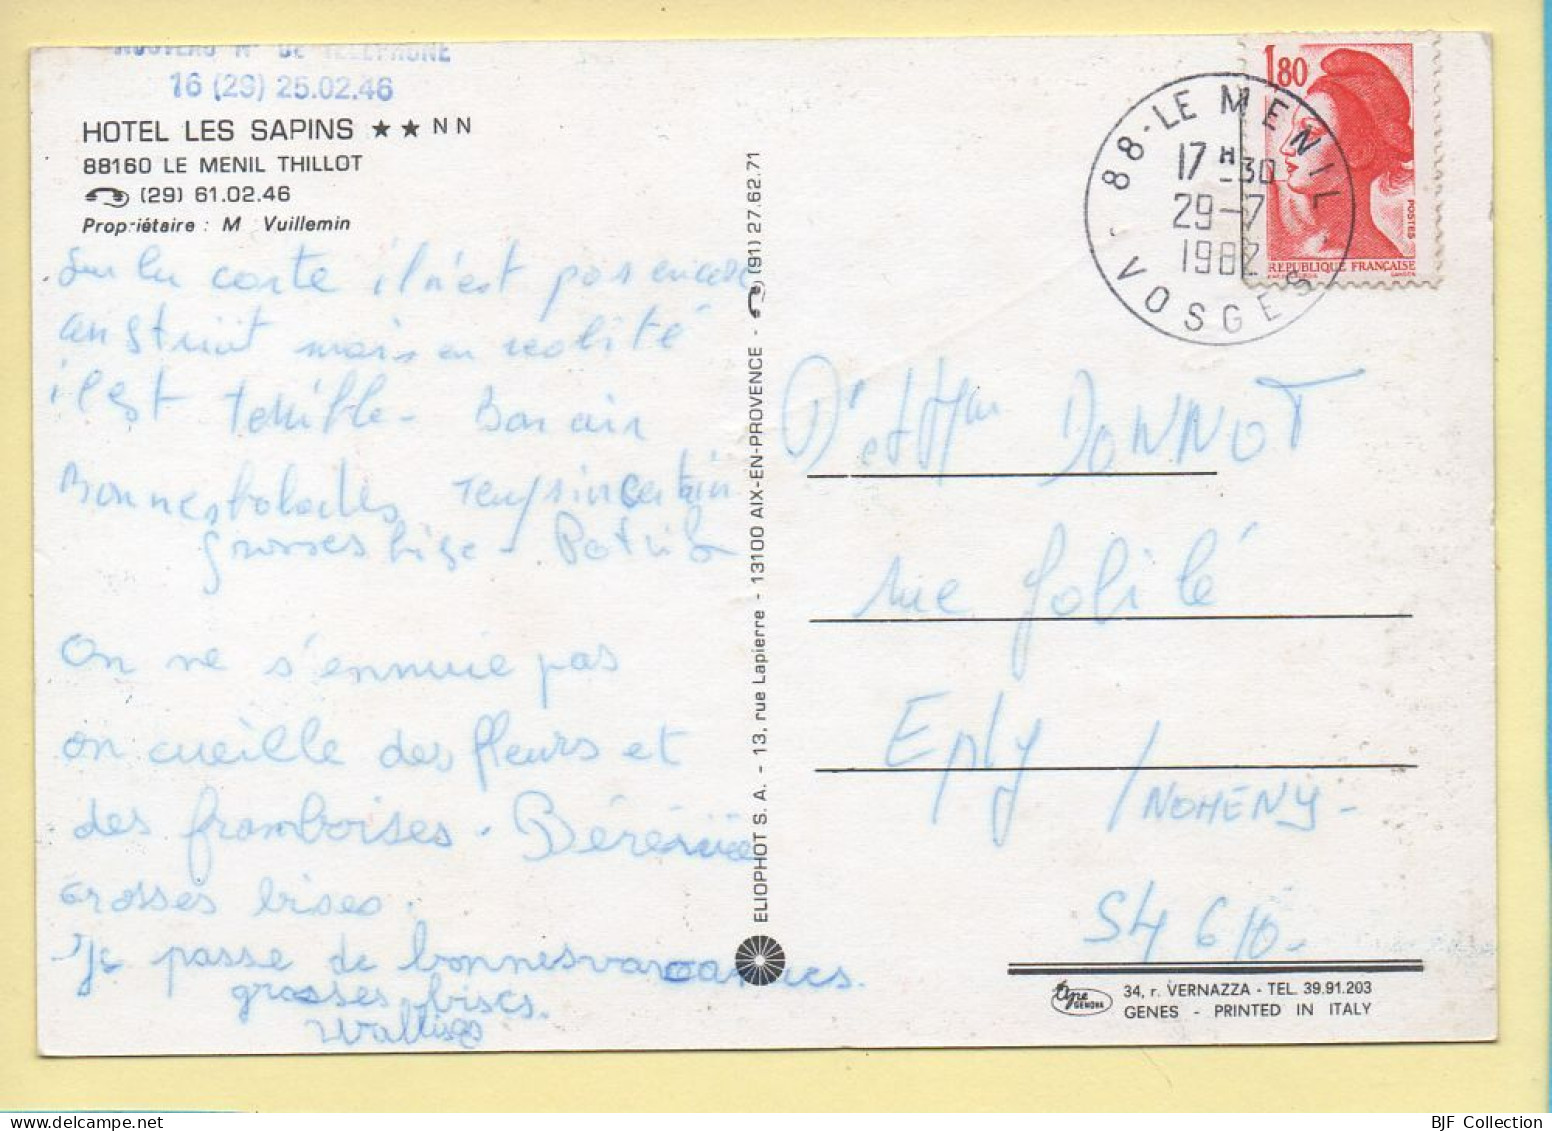 NOUVEAU N° DE TELEPHONE
16 (29) 25.02.46
HOTEL LES SAPINS ★★ N N
88160 LE MENIL THILLOT
(29) 61.02.46
Propriétaire : M Vuillemin
Sur la carte il n'est pas encore
construit mais en réalité
il est terrible - Bon air
Bonnes balades Temps incertain
grosses bise - Patrik
On ne s'ennuie pas
on cueille des fleurs et
des framboises. Bérénice
Grosses bises.
Je passe de bonnes vacances.
grosses bises.
ELIOPHOT S. A. - 13, rue Lapierre - 13100 AIX-EN-PROVENCE - (91) 27.62.71
1,80
POSTES
REPUBLIQUE FRANÇAISE
88 - LE MENIL
17 H 30
29-7
1982
VOSGES
Dr et Mme DONNOT
rue
Eply / NOMENY -
54 610 -
type GENOVA
34, r. VERNAZZA - TEL. 39.91.203
GENES - PRINTED IN ITALY
BJF Collection